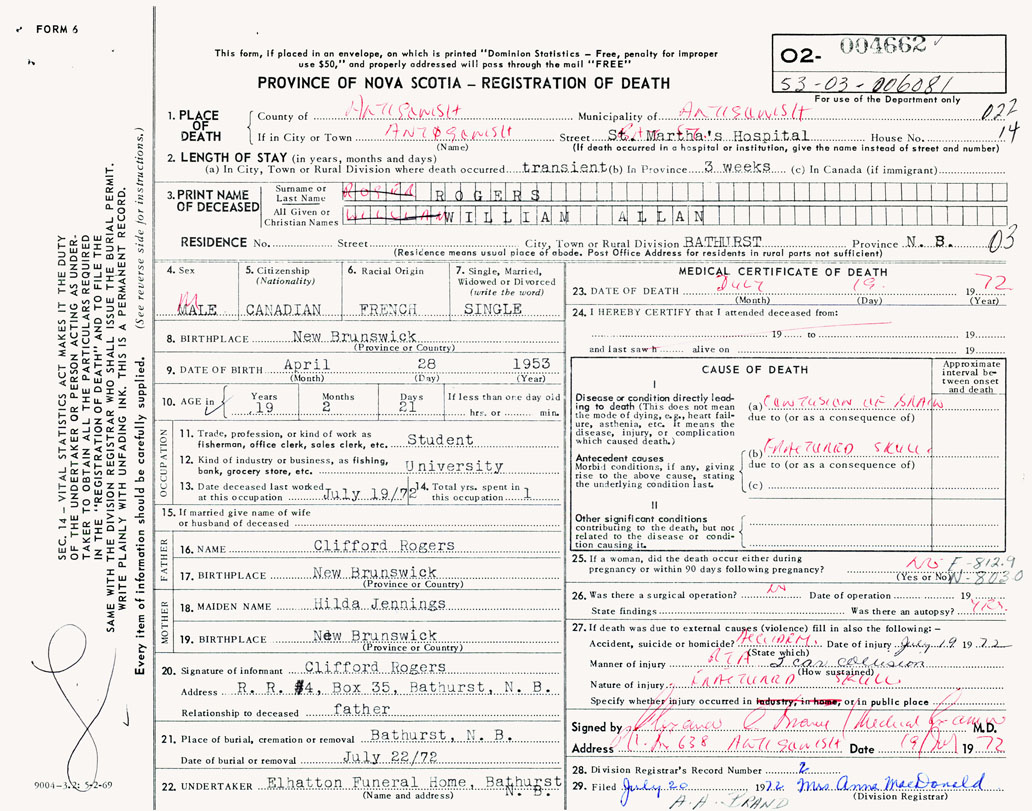 FORM 6
This form, if placed in an envelope, on which is printed "Dominion Statistics – Free, penalty for improper
use $50," and properly addressed will pass through the mail "FREE"
PROVINCE OF NOVA SCOTIA – REGISTRATION OF DEATH
02- 004662
53-03-006081
For use of the Department only
022
14
1. PLACE OF DEATH
County of ANTIGONISH Municipality of ANTIGONISH
If in City or Town ANTIGONISH Street St. Martha's Hospital House No.
(Name) (If death occurred in a hospital or institution, give the name instead of street and number)
2. LENGTH OF STAY (in years, months and days)
(a) In City, Town or Rural Division where death occurred transient (b) In Province 3 weeks (c) In Canada (if immigrant)
3. PRINT NAME OF DECEASED
Surname or Last Name ROGERS
All Given or Christian Names WILLIAM ALLAN
RESIDENCE No. Street City, Town or Rural Division BATHURST Province N. B. 03
(Residence means usual place of abode. Post Office Address for residents in rural parts not sufficient)
4. Sex
M
MALE
5. Citizenship
(Nationality)
CANADIAN
6. Racial Origin
FRENCH
7. Single, Married,
Widowed or Divorced
(write the word)
SINGLE
8. BIRTHPLACE New Brunswick
(Province or Country)
9. DATE OF BIRTH April 28 1953
(Month) (Day) (Year)
10. AGE in Years Months Days If less than one day old
19 2 21 hrs. or min.
OCCUPATION
11. Trade, profession, or kind of work as
fisherman, office clerk, sales clerk, etc. Student
12. Kind of industry or business, as fishing,
bank, grocery store, etc. University
13. Date deceased last worked
at this occupation July 19/72
14. Total yrs. spent in
this occupation 1
15. If married give name of wife
or husband of deceased
FATHER
16. NAME Clifford Rogers
17. BIRTHPLACE New Brunswick
(Province or Country)
MOTHER
18. MAIDEN NAME Hilda Jennings
19. BIRTHPLACE New Brunswick
(Province or Country)
20. Signature of informant Clifford Rogers
Address R. R. #4, Box 35, Bathurst, N. B.
Relationship to deceased father
21. Place of burial, cremation or removal Bathurst, N. B.
Date of burial or removal July 22/72
22. UNDERTAKER Elhatton Funeral Home, Bathurst
N. B.
(Name and address)
MEDICAL CERTIFICATE OF DEATH
23. DATE OF DEATH JULY 19. 1972
(Month) (Day) (Year)
24. I HEREBY CERTIFY that I attended deceased from:
19 to 19
and last saw h alive on 19
CAUSE OF DEATH
Approximate
interval be-
tween onset
and death
I
Disease or condition directly lead-
ing to death (This does not mean
the mode of dying, e.g., heart fail-
ure, asthenia, etc. It means the
disease, injury, or complication
which caused death.)
(a) CONTUSION OF BRAIN
due to (or as a consequence of)
Antecedent causes
Morbid conditions, if any, giving
rise to the above cause, stating
the underlying condition last.
(b) FRACTURED SKULL
due to (or as a consequence of)
(c)
II
Other significant conditions
contributing to the death, but not
related to the disease or condi-
tion causing it.
25. If a woman, did the death occur either during
pregnancy or within 90 days following pregnancy? NO
(Yes or No)
E-812.9
N-803.0
26. Was there a surgical operation? NO Date of operation 19
State findings Was there an autopsy? YES
27. If death was due to external causes (violence) fill in also the following: –
Accident, suicide or homicide? ACCIDENT Date of injury July 19 1972
(State which)
Manner of injury RTA 2 car collision
(How sustained)
Nature of injury FRACTURED SKULL
Specify whether injury occurred in industry, in home, or in public place
Signed by Medical Examiner M.D.
Address 638 ANTIGONISH Date 19 July 1972
28. Division Registrar's Record Number 2
29. Filed July 20 1972 Mrs. Anne MacDonald
(Division Registrar)
SEC. 14 – VITAL STATISTICS ACT MAKES IT THE DUTY
OF THE UNDERTAKER OR PERSON ACTING AS UNDER-
TAKER TO OBTAIN ALL THE PARTICULARS REQUIRED
IN THE "REGISTRATION OF DEATH" AND TO FILE THE
SAME WITH THE DIVISION REGISTRAR WHO SHALL ISSUE THE BURIAL PERMIT.
WRITE PLAINLY WITH UNFADING INK. THIS IS A PERMANENT RECORD.
Every item of information should be carefully supplied. (See reverse side for instructions.)
9004-3.2: 5-2-69